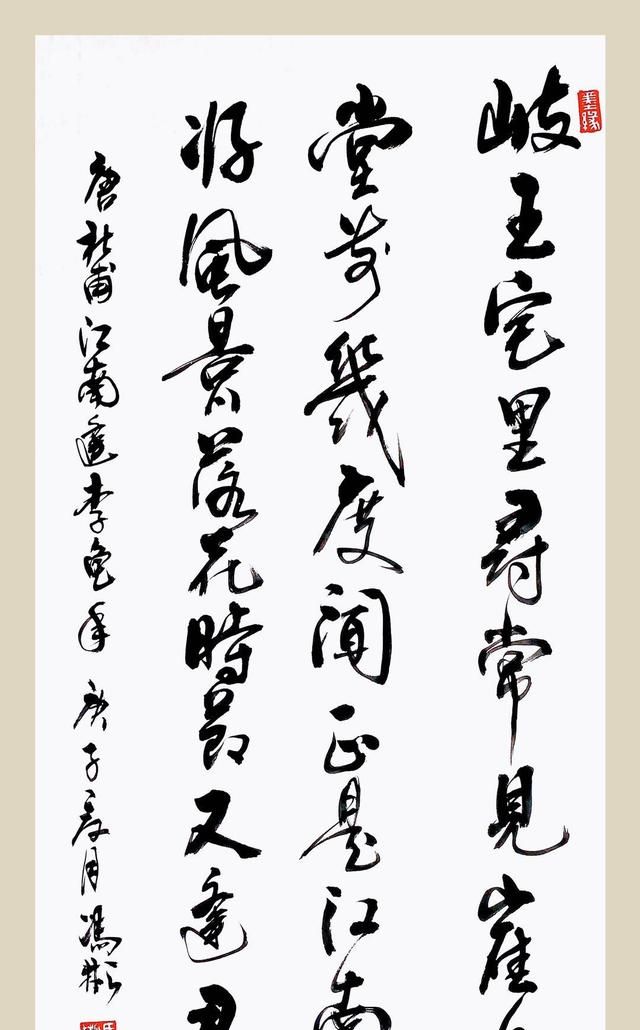 墨緣
岐王宅里尋常見崔
堂前幾度聞正是江南
好風景落花時節又逢君
唐杜甫江南逢李龜年 庚子夏月 馮